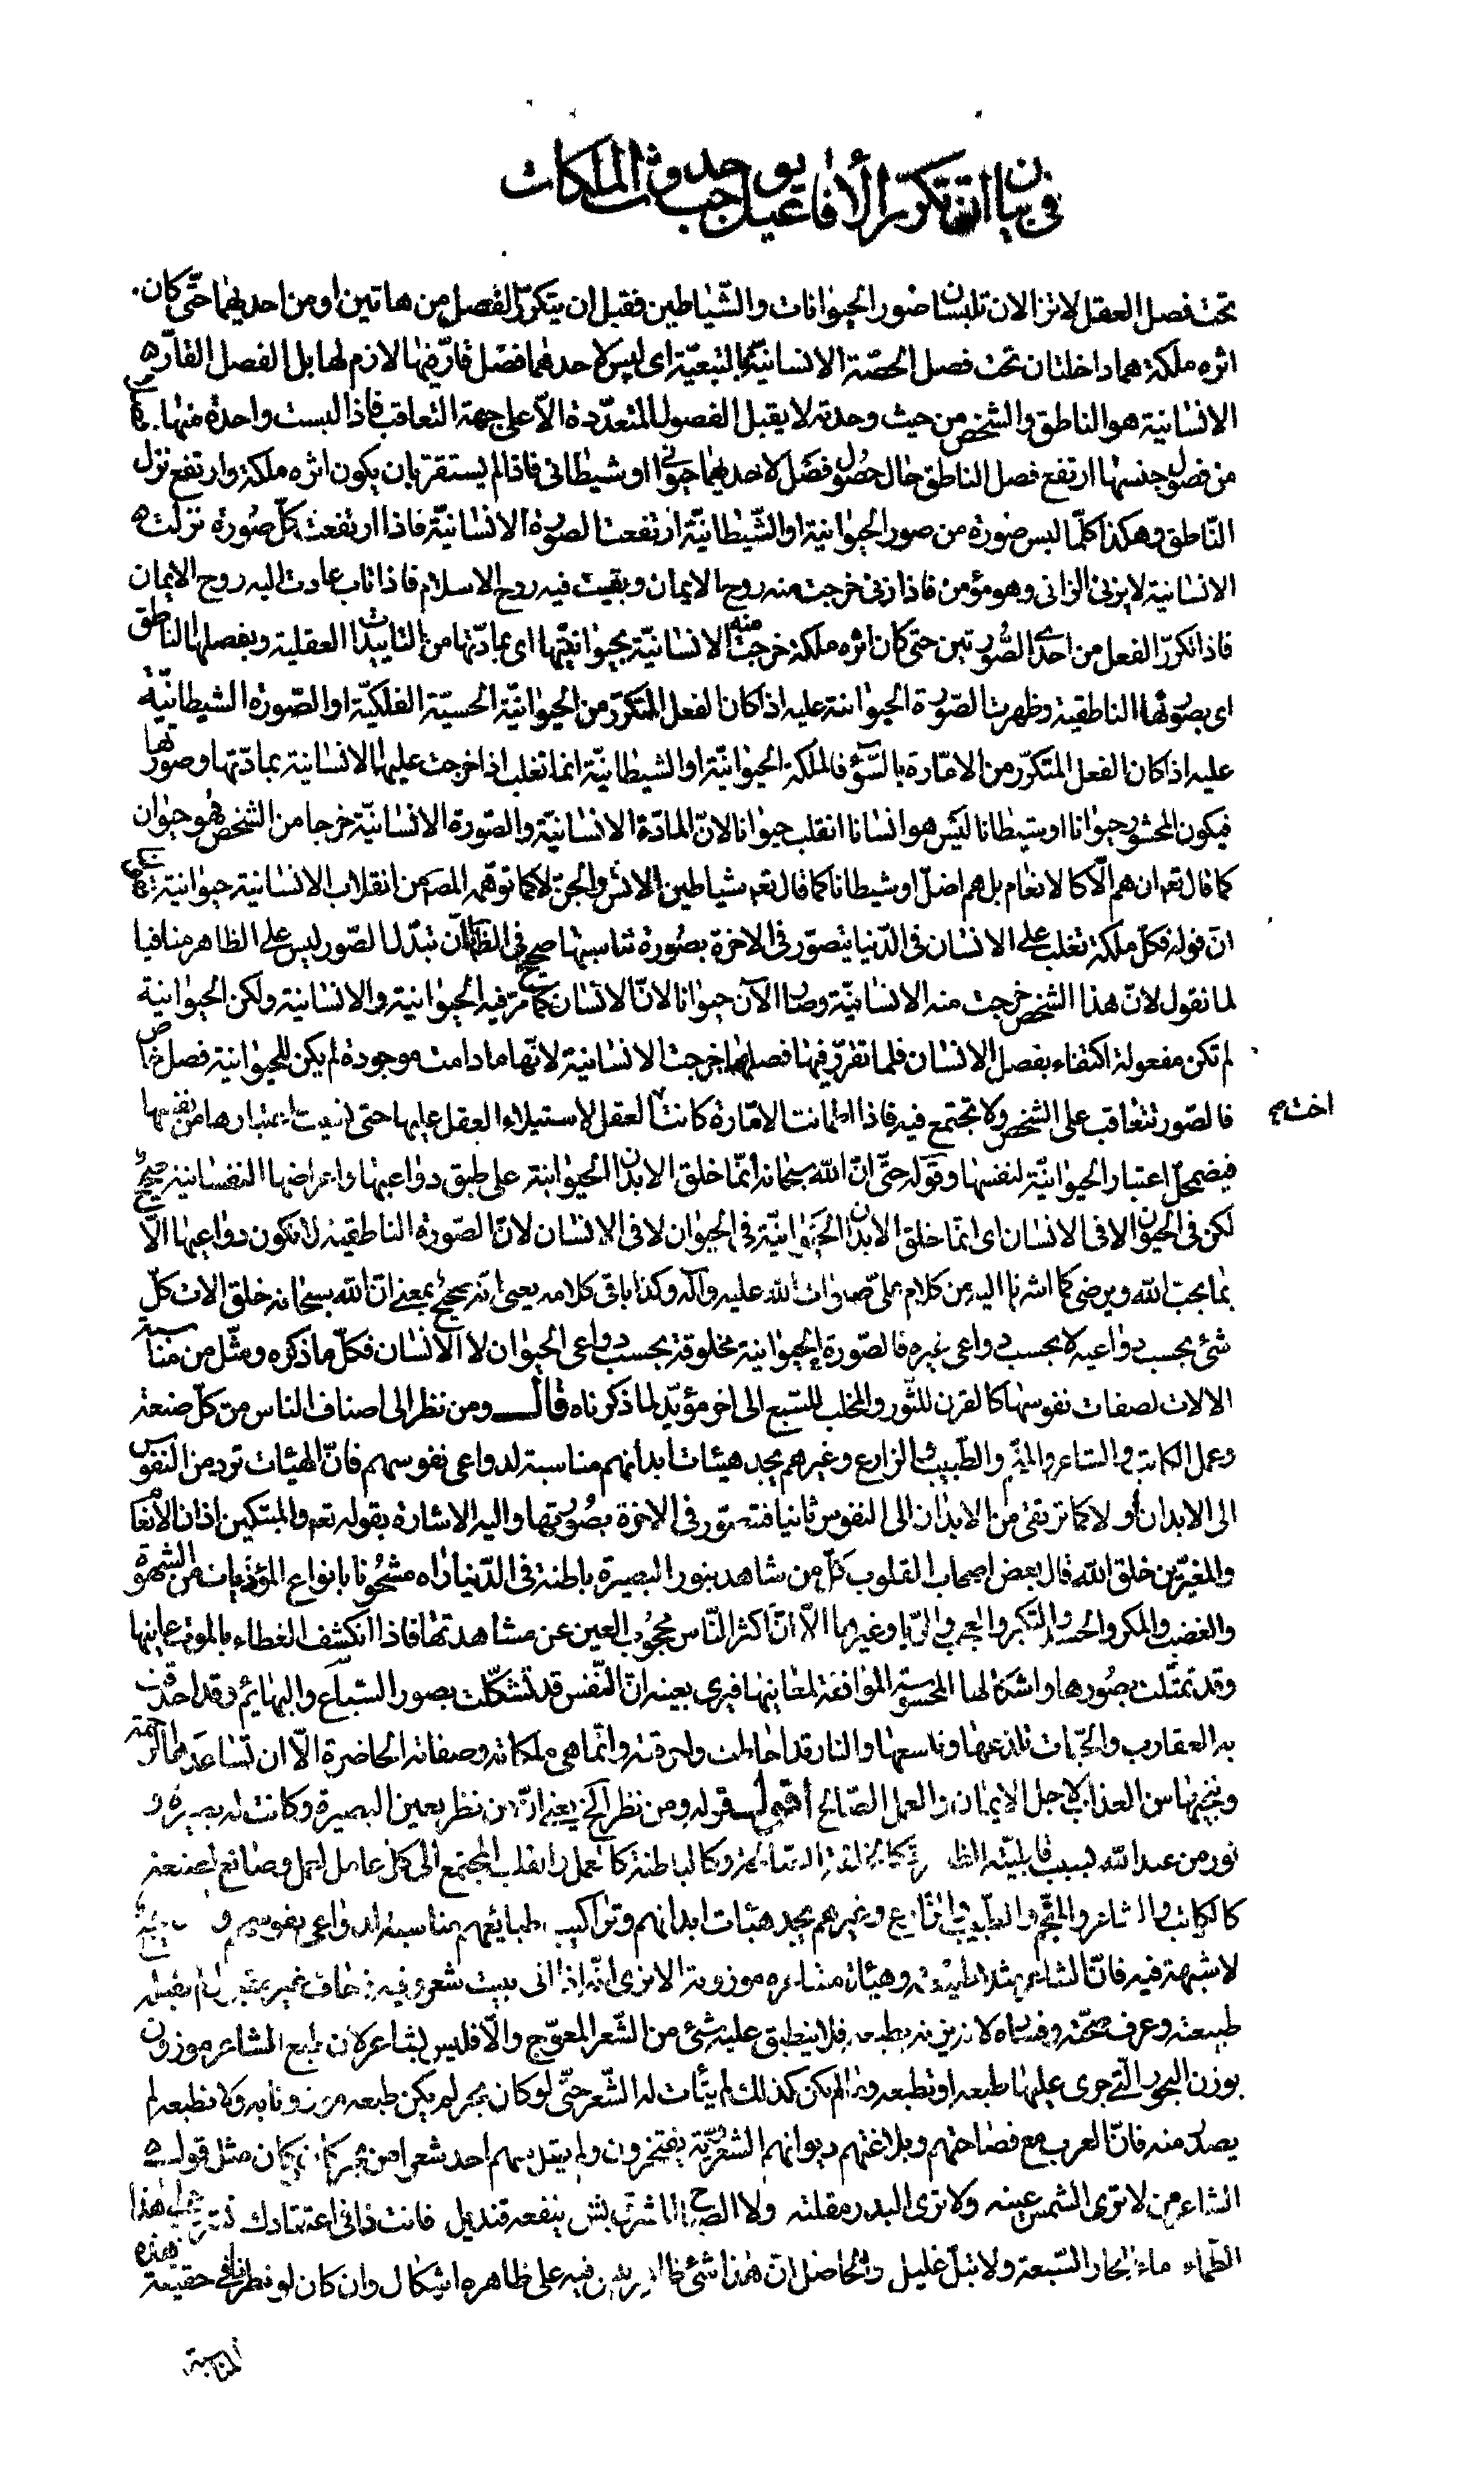 في بيان ان تكرر الأفاعيل يوجب حدوث الملكات
تحت فصل العقل لا تزالان تلبسان صور الحيوانات والشياطين فقبل ان يتكرر الفصل من هاتين او من احديهما حتى كان
اثره ملكة هما داخلتان تحت فصل الحصة الانسانية بالتبعية اى ليس لاحدهما فصل قار فيها لازم لها بل الفصل القار
الانسانية هو الناطق والشخص من حيث وحدته لا يقبل الفصول المتعددة الا على جهة التعاقب فاذا لبست واحدة منها
من فصول جنسها ارتفع فصل الناطق حال حصول فصل لاحديهما حيوانى او شيطانى فاذا لم يستقر بان يكون اثره ملكة وارتفع نزل
الناطق وهكذا كلما لبس صورة من صور الحيوانية او الشيطانية ارتفعت الصورة الانسانية فاذا ارتفعت كل صورة نزلت
الانسانية لا يزنى الزانى وهو مؤمن فاذا زنى خرجت منه روح الايمان وبقيت فيه روح الاسلام فاذا تاب عادت اليه روح الايمان
فاذا تكرر الفعل من احدى الصورتين حتى كان اثره ملكة خرجت منه الانسانية بحيوانيتها اى بمادتها من التاييدات العقلية وبفصلها الناطق
اى بصورتها الناطقية وظهرت الصورة الحيوانية عليه اذا كان الفعل المتكرر من الحيوانية الحسية الفلكية او الصورة الشيطانية
عليه اذا كان الفعل المتكرر من الامارة بالسوء فالملكة الحيوانية او الشيطانية انما تغلب اذا خرجت عليها الانسانية بمادتها وصورتها
فيكون المحشور حيوانا او شيطانا ليس هو انسانا انقلب حيوانا لان المادة الانسانية والصورة الانسانية خرجا من الشخص فهو حيوان
كما قال تعه ان هم الا كالانعام بل هم اضل او شيطانا كما قال تعه شياطين الانس والجن لا كما توهمه المصه من انقلاب الانسانية حيوانية
ان قوله فكل ملكة تغلب على الانسان فى الدنيا يتصور فى الاخرة بصورة تناسبها صحيح فى الظاهر لان تبدل الصور ليس على الظاهر منافيا
لما نقول لان هذا الشخص خرجت منه الانسانية وصار الآن حيوانا لان الانسان كما مر فيه الحيوانية والانسانية ولكن الحيوانية
لم تكن مفعولة اكتفاء بفصل الانسان فلما تقرر فيها فصلها خرجت الانسانية لانها ما دامت موجودة لم يكن للحيوانية فصل خاص
فالصور تتعاقب على الشخص ولا تجتمع فيه فاذا اطمانت الامارة كانت اخت العقل لاستيلاء العقل عليها حتى نسيت اعتبارها من نفسها
فيضمحل اعتبار الحيوانية لنفسها وقوله حتى ان الله سبحانه انما خلق الابدان الحيوانية على طبق دواعيها واغراضها النفسانية صحيح
لكن فى الحيوان لا فى الانسان اى انما خلق الابدان الحيوانية فى الحيوان لا فى الانسان لان الصورة الناطقية لا تكون دواعيها الا
بما يحب الله ويرضى كما اشرنا اليه من كلام على صلوات الله عليه وآله وكذا باقى كلامه يعنى انه صحيح بمعنى ان الله سبحانه خلق الات كل
شئ بحسب دواعيه لا بحسب دواعى غيره فالصورة الحيوانية مخلوقة بحسب دواعى الحيوان لا الانسان فكل ما ذكره ومثل من مناسبة
الالات لصفات نفوسها كالقرن للثور والمخلب للسبع الى اخر مؤيد لما ذكرناه قال ومن نظر الى اصناف الناس من كل صنعة
وعمل الكاتب والشاعر والمنجم والطبيب والزارع وغيرهم يجد هيئات ابدانهم مناسبة لدواعى نفوسهم فان الهيئات ترد من النفوس
الى الابدان أولا كما ترتقى من الابدان الى النفوس ثانيا فتتصور فى الاخرة بصورتها واليه الاشارة بقوله تعه والمبتكين اذان الأنعام
والمغيرين خلق الله قال بعض اصحاب القلوب كل من شاهد بنور البصيرة باطنه فى الدنيا راه مشحونا بانواع المؤذيات من الشهوة
والغضب والمكر والحسد والتكبر والعجب والريا وغيرها الا ان اكثر الناس محجوب العين عن مشاهدتها فاذا انكشف الغطاء بالموت عاينها
وقد تمثلت بصورها واشكالها المحسوسة الموافقة لمعانيها فيرى بعينه ان النفس قد تشكلت بصور السباع والبهائم وقد احدقت
به العقارب والحيات تلدغها وتلسعها والنار قد احاطت واحرقته وانما هى ملكاته وصفاته الحاضرة الا ان تساعده الرحمة
وينجيها من العذاب لاجل الايمان والعمل الصالح أقول قوله ومن نظر الخ يعنى انه من نظر بعين البصيرة وكانت له بصيرة و
نور من عند الله بسبب قابليته وكالباطنة كالعمل والقلب المجتمع الى كل عامل لعمل وصانع لصنعة
كالكاتب والشاعر والمنجم والطبيب والزارع وغيرهم يجد هيئات ابدانهم وتراكيب طبائعهم مناسبة لدواعى نفوسهم و
لا شبهة فيه فان الشاعر وهيئات مشاعره موزونة الا ترى انه اذا اتى ببيت شعر وفيه زحاف غير لم يقبله
طبيعته وعرف صحته وفساده لا نه بطبعه فلا ينطبق عليه شئ من الشعر المعوج والا فليس بشاعر لان طبع الشاعر موزون
بوزن البحور التى جرى عليها طبعه او تطبعه ولو لم يكن كذلك لم يتأت له الشعر حتى لو كان بحر لم يكن طبعه موزونا به ولا تطبعه لم
يصدر منه فان العرب مع فصاحتهم وبلاغتهم ديوانهم الشعر به يفتخرون ولم احد شعرا من بحر كان مثل قول
الشاعر من لا ترى الشمس عينه ولا ترى البدر مقلته ولا الصبح ينفعه قنديل فانت ذا فى اعتقادك هذا
الظماء ماء البحار السبعة ولا تبل غليل والحاصل ان هذا شئ فيه على ظاهره اشكال وان كان لو نظرنا فى حقيقة هذه
المناسبة